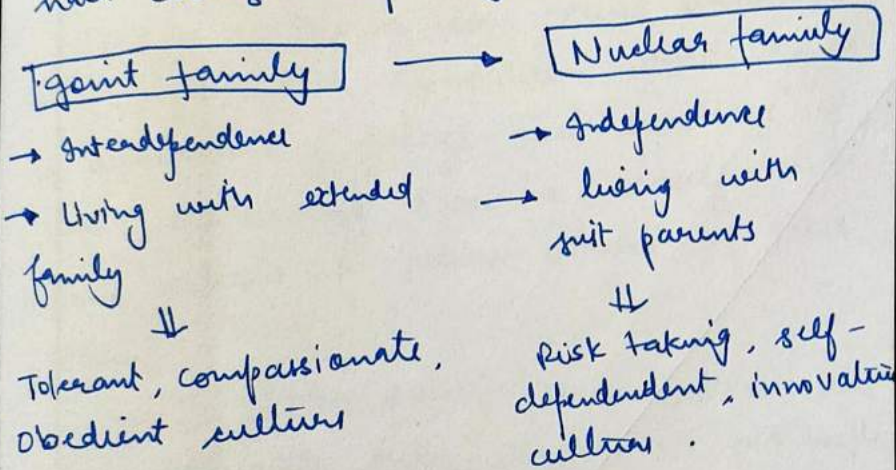 Joint family → Nuclear family
→ Interdependence
→ Living with extended
family
⇓
Tolerant, compassionate,
Obedient cultures
→ Independence
→ living with
just parents
⇓
Risk taking, self-
dependendent, innovative
cultures.